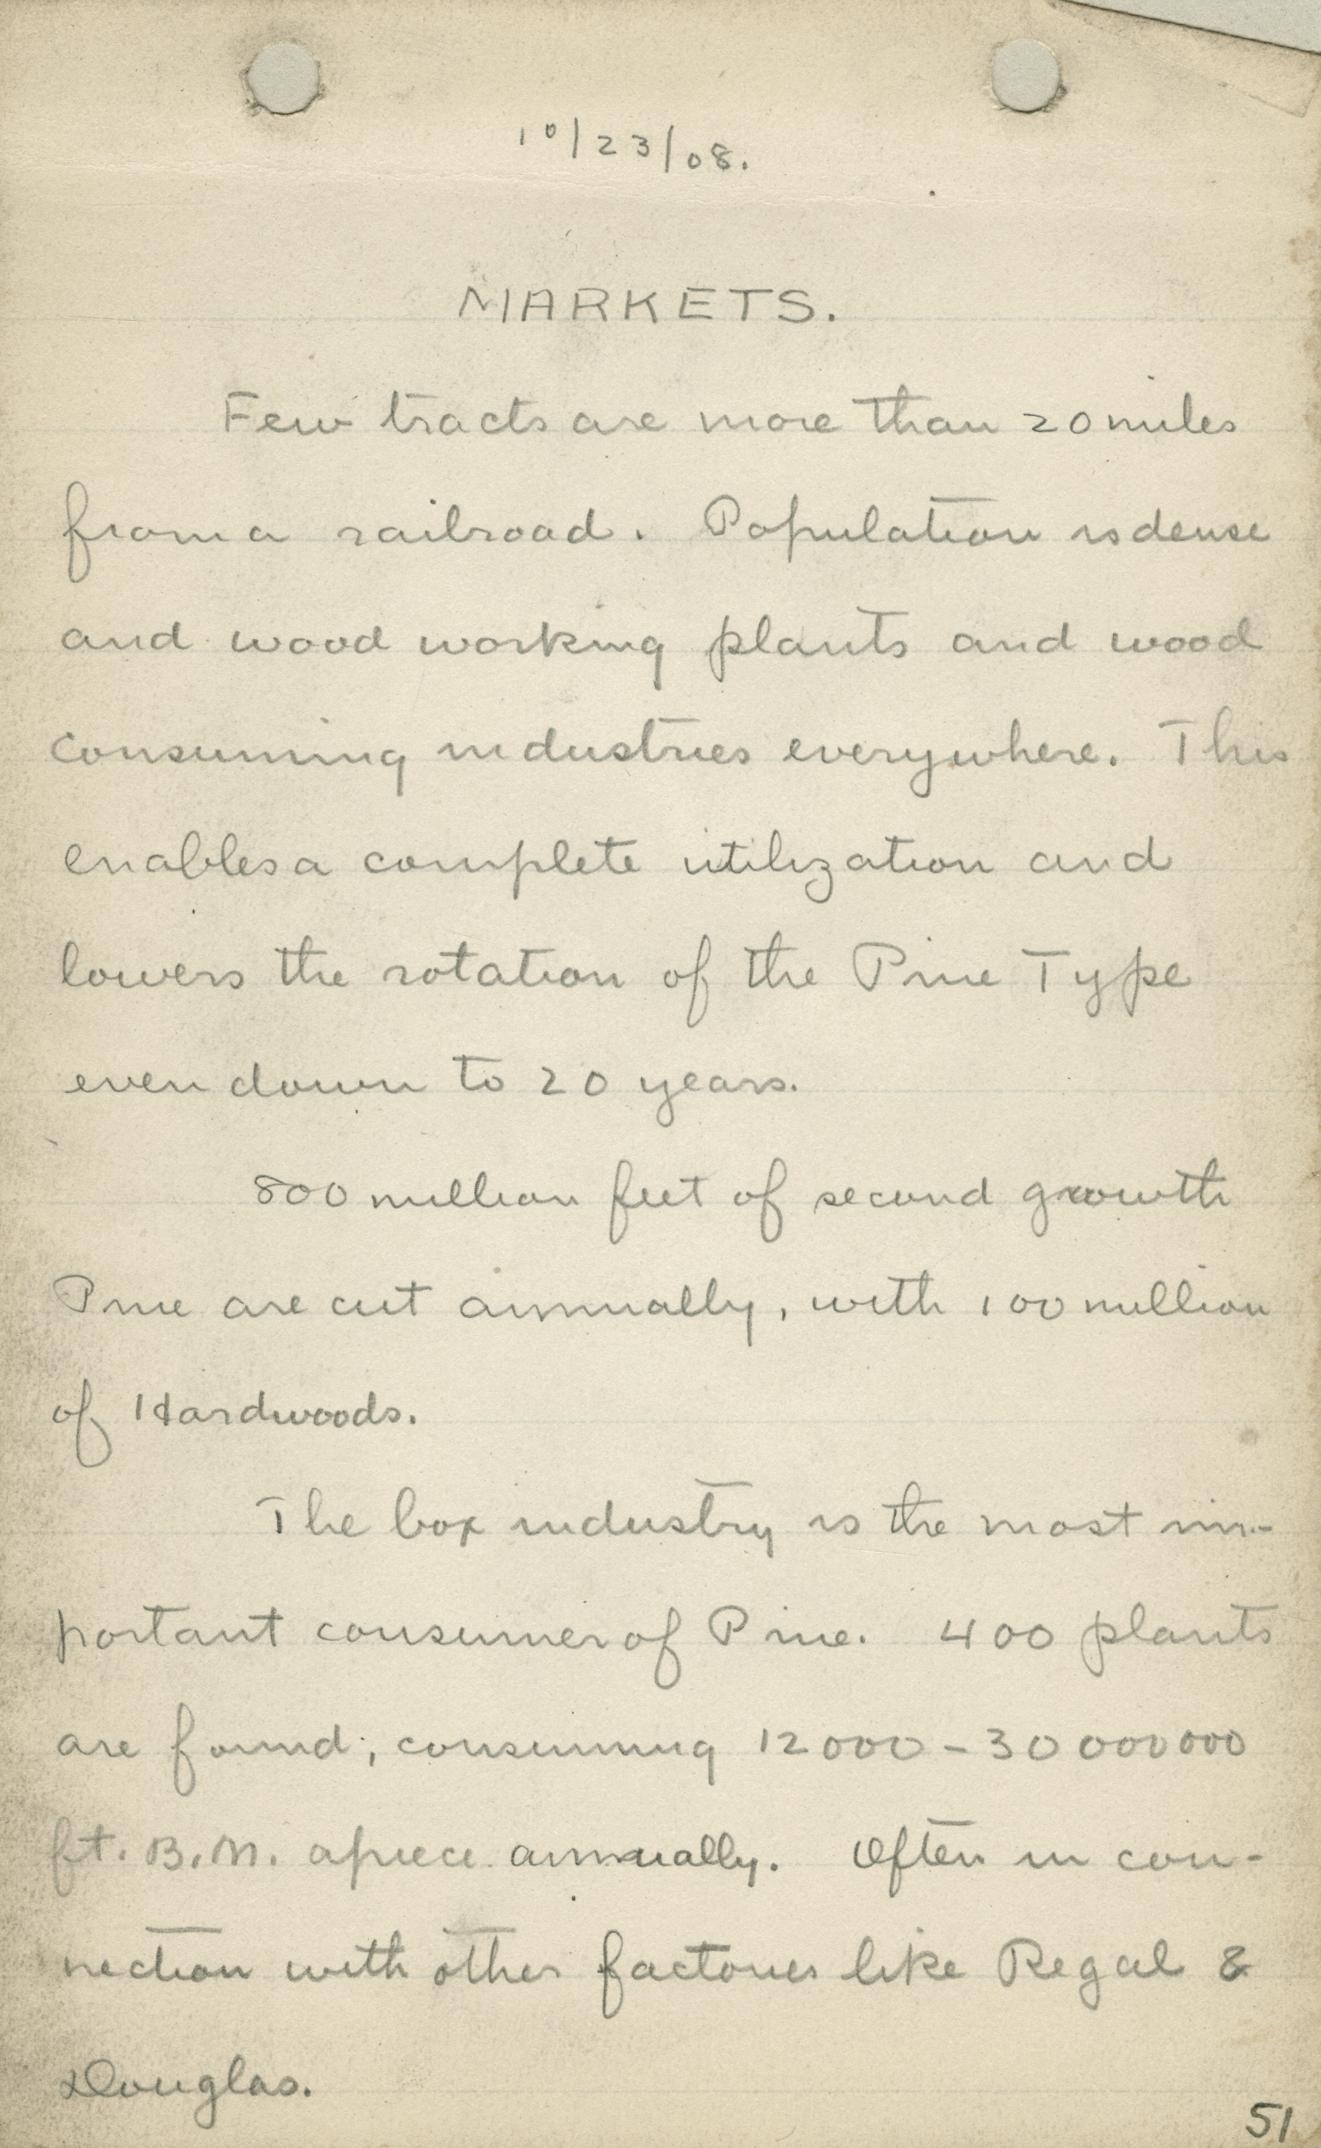 10/23/08.
MARKETS.
Few tracts are more than 20 miles
from a railroad. Population is dense
and wood working plants and wood
consuming industries everywhere. This
enables a complete utilization and
lowers the rotation of the Pine Type
even down to 20 years.
800 million feet of second growth
Pine are cut annually, with 100 million
of Hardwoods.
The box industry is the most im-
portant consumer of Pine. 400 plants
are found, consuming 12000-30000000
ft. B.M. apiece annually. Often in con-
nection with other factories like Regal &
Douglas.
51